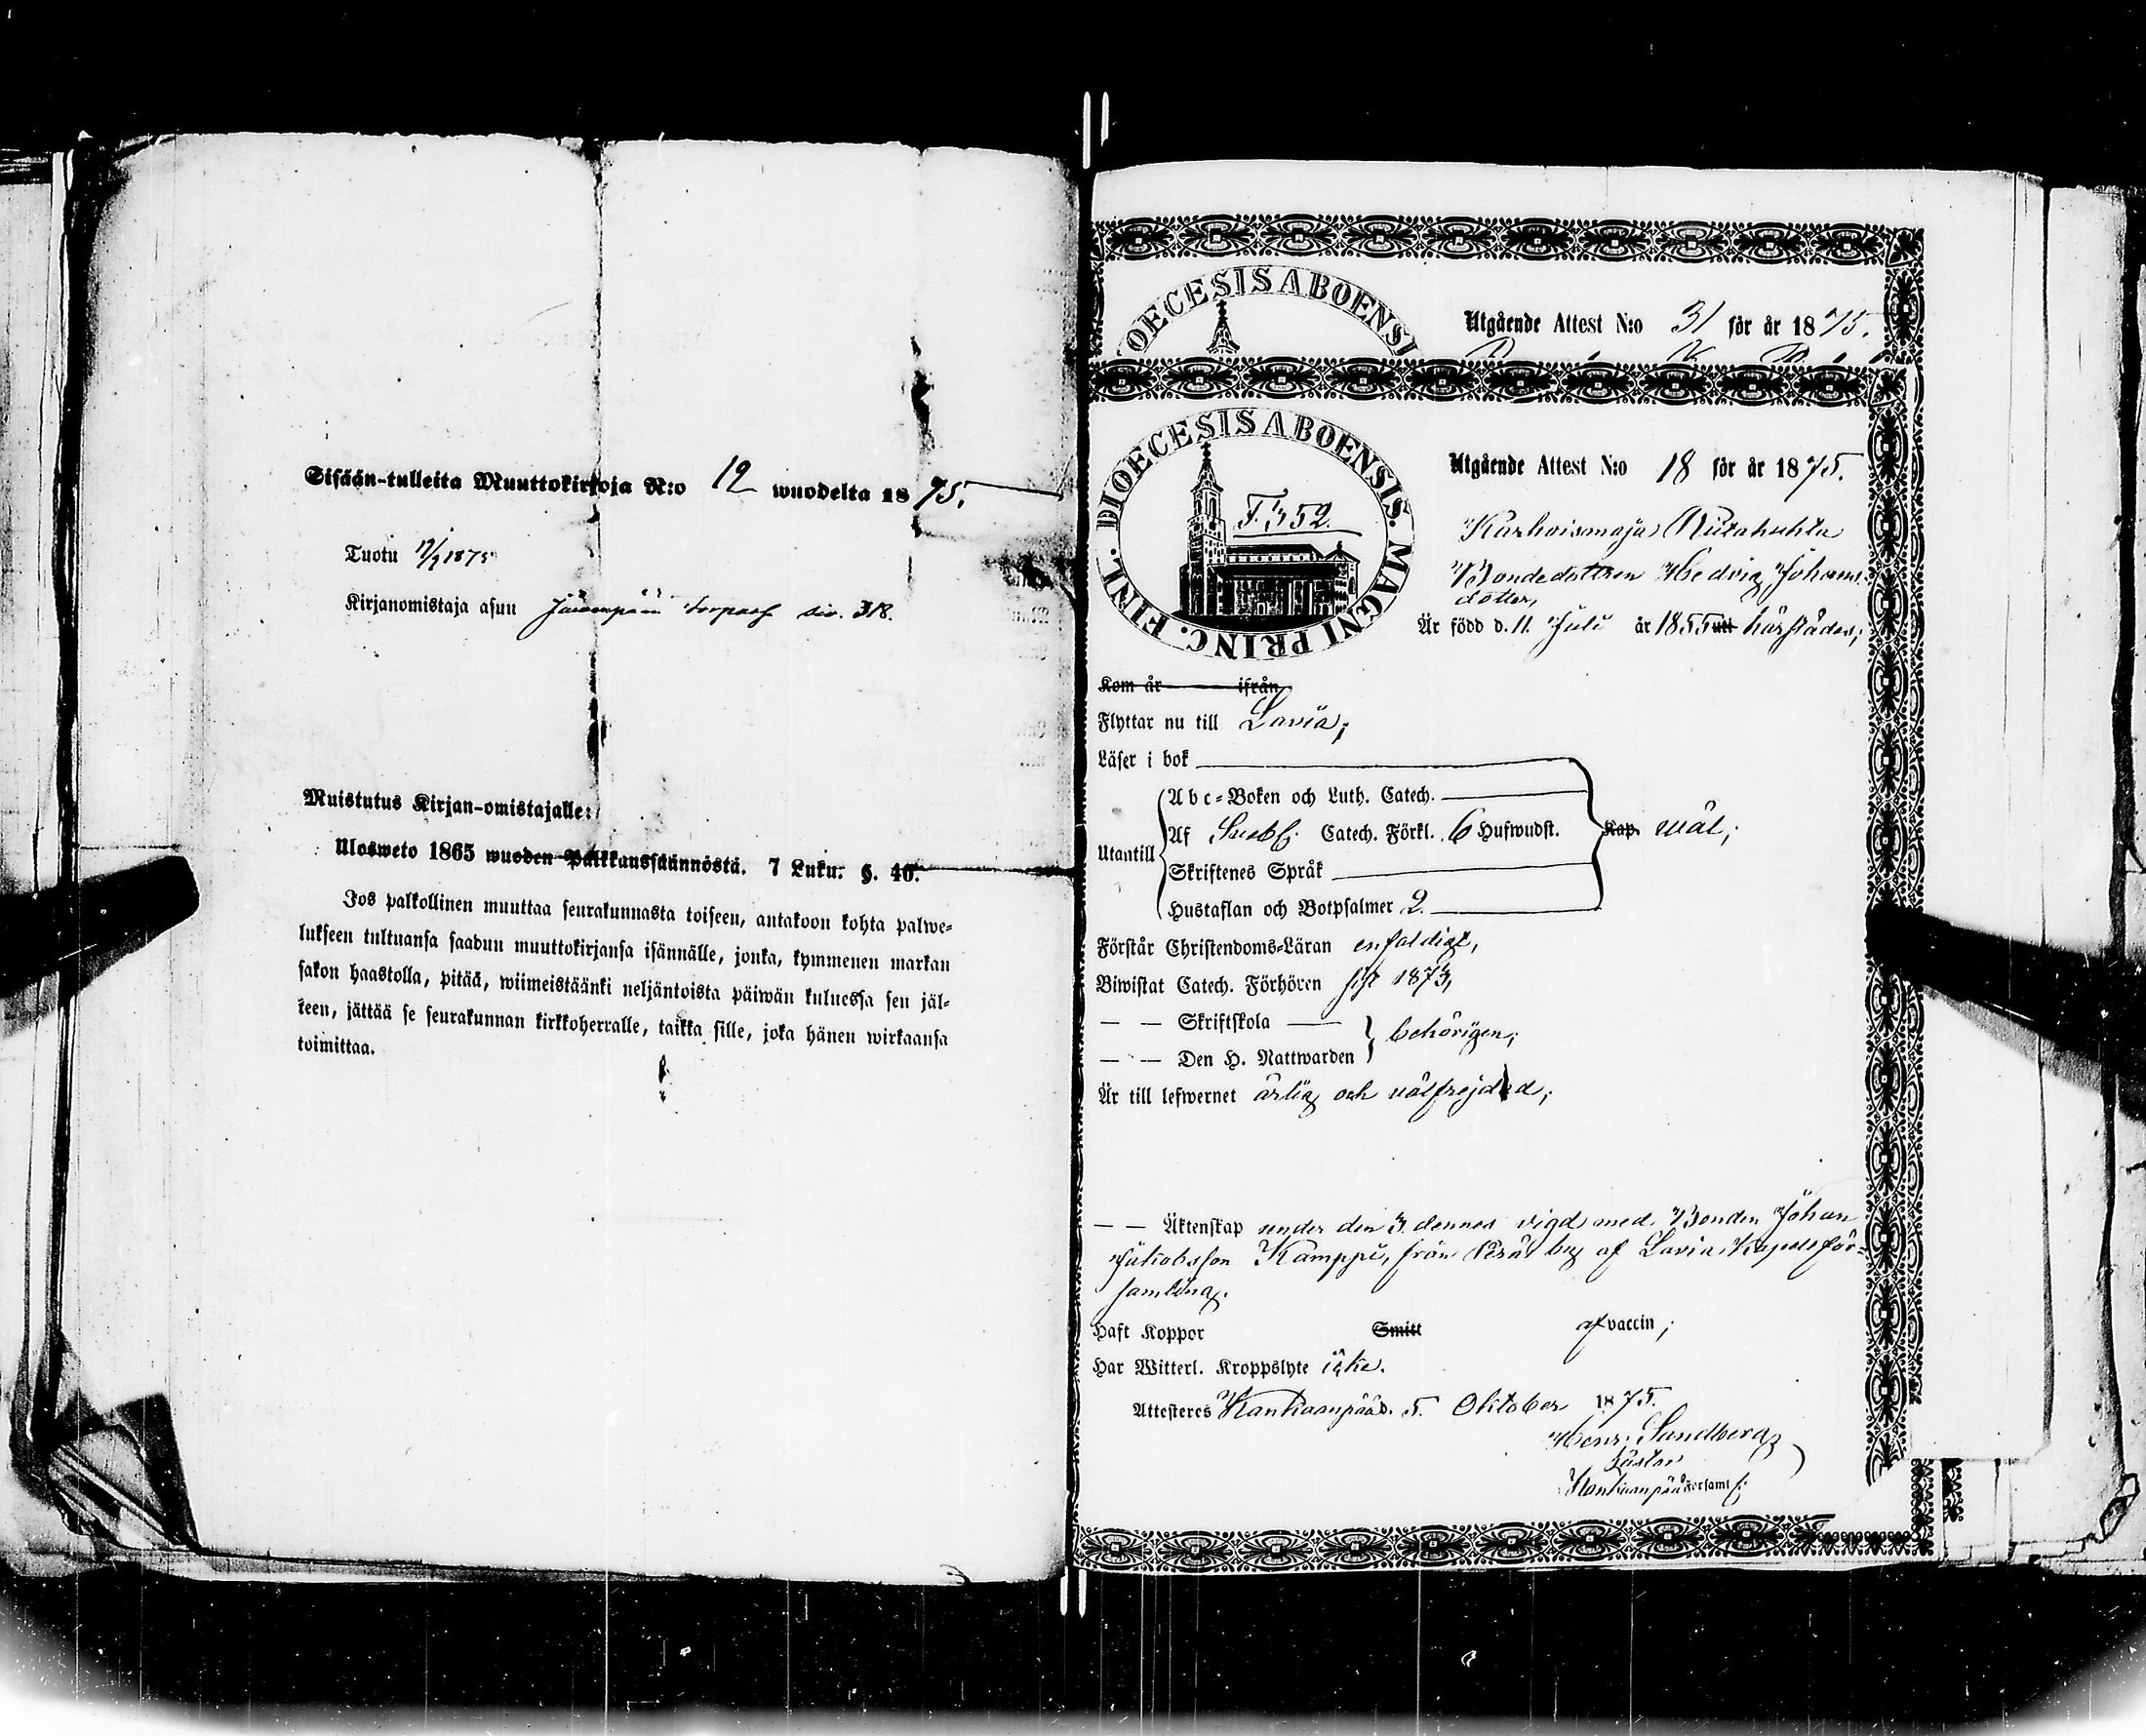 Sisään-tulleita Muuttokirjoja N:o 12 wuodelta 1875.
Tuotu 12/9 1875
Kirjanomistaja asuu torpass siv. 318.
Muistutus Kirjan-omistajalle:
Ulosweto 1865 wuoden Palkkaussäännöstä. 7 Luku. §. 40.
Jos palkollinen muuttaa seurakunnasta toiseen, antakoon kohta palwe-
lukseen tultuansa saadun muuttokirjansa isännälle, jonka, kymmenen markan
sakon haastolla, pitää, wiimeistäänki neljäntoista päiwän kuluessa sen jäl-
keen, jättää se seurakunnan kirkkoherralle, taikka sille, joka hänen wirkaansa
toimittaa.
OECESIS ABOENSI
Utgående Attest N:o 31 för år 1875.
DIOECESIS ABOENSIS. MAGNI PRINC. FINL.
F. 352.
Utgående Attest N:o 18 för år 1875.
Karhoismaja
Bondedottren Hedvig Johans
dotter,
Är född d. 11. Juli år 1855 utt härstädes;
Kom år ifrån
Flyttar nu till Lavia;
Läser i bok
Utantill
Abc-Boken och Luth. Catech.
Af Svebil: Catech. Förkl. 6 Hufwudst.
Kap. väl;
Skriftenes Språk
Hustaflan och Botpsalmer 2.
Förstår Christendoms-Läran enfaldigt,
Biwistat Catech. Förhören sist 1873,
— — Skriftskola —
— — Den H. Nattwarden
behörigen;
Är till lefwernet ärlig och välfrejdad;
— — Äktenskap under den 3 dennes vigd med Bonden Johan
Jakobsson Kamppi, från Perä by af Lavia Kapellför-
samling.
Haft Koppor Smitt af vaccin;
Har Witterl. Kroppslyte icke.
Attesteres Kankaanpää d. 5. Oktober 1875.
Henr. Sandberg
Pastor
Kankaanpää Församl: